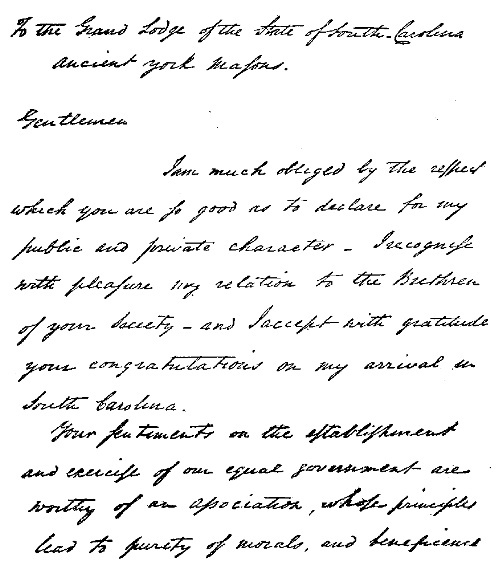 To the Grand Lodge of the State of South-Carolina
ancient york Masons.
Gentlemen
I am much obliged by the respect
which you are so good as to declare for my
public and private character - I recognise
with pleasure my relation to the Brethren
of your Society - and I accept with gratitude
your congratulations on my arrival in
South Carolina.
Your sentiments on the establishment
and exercise of our equal government are
worthy of an association, whose principles
lead to purity of morals, and beneficence